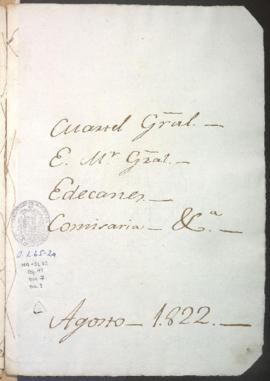 Cuartel Gral. —
E. Mr Gral. —
Edecanes —
Comisaria — &.a
O.L. 65-24
Agosto — 1822. —